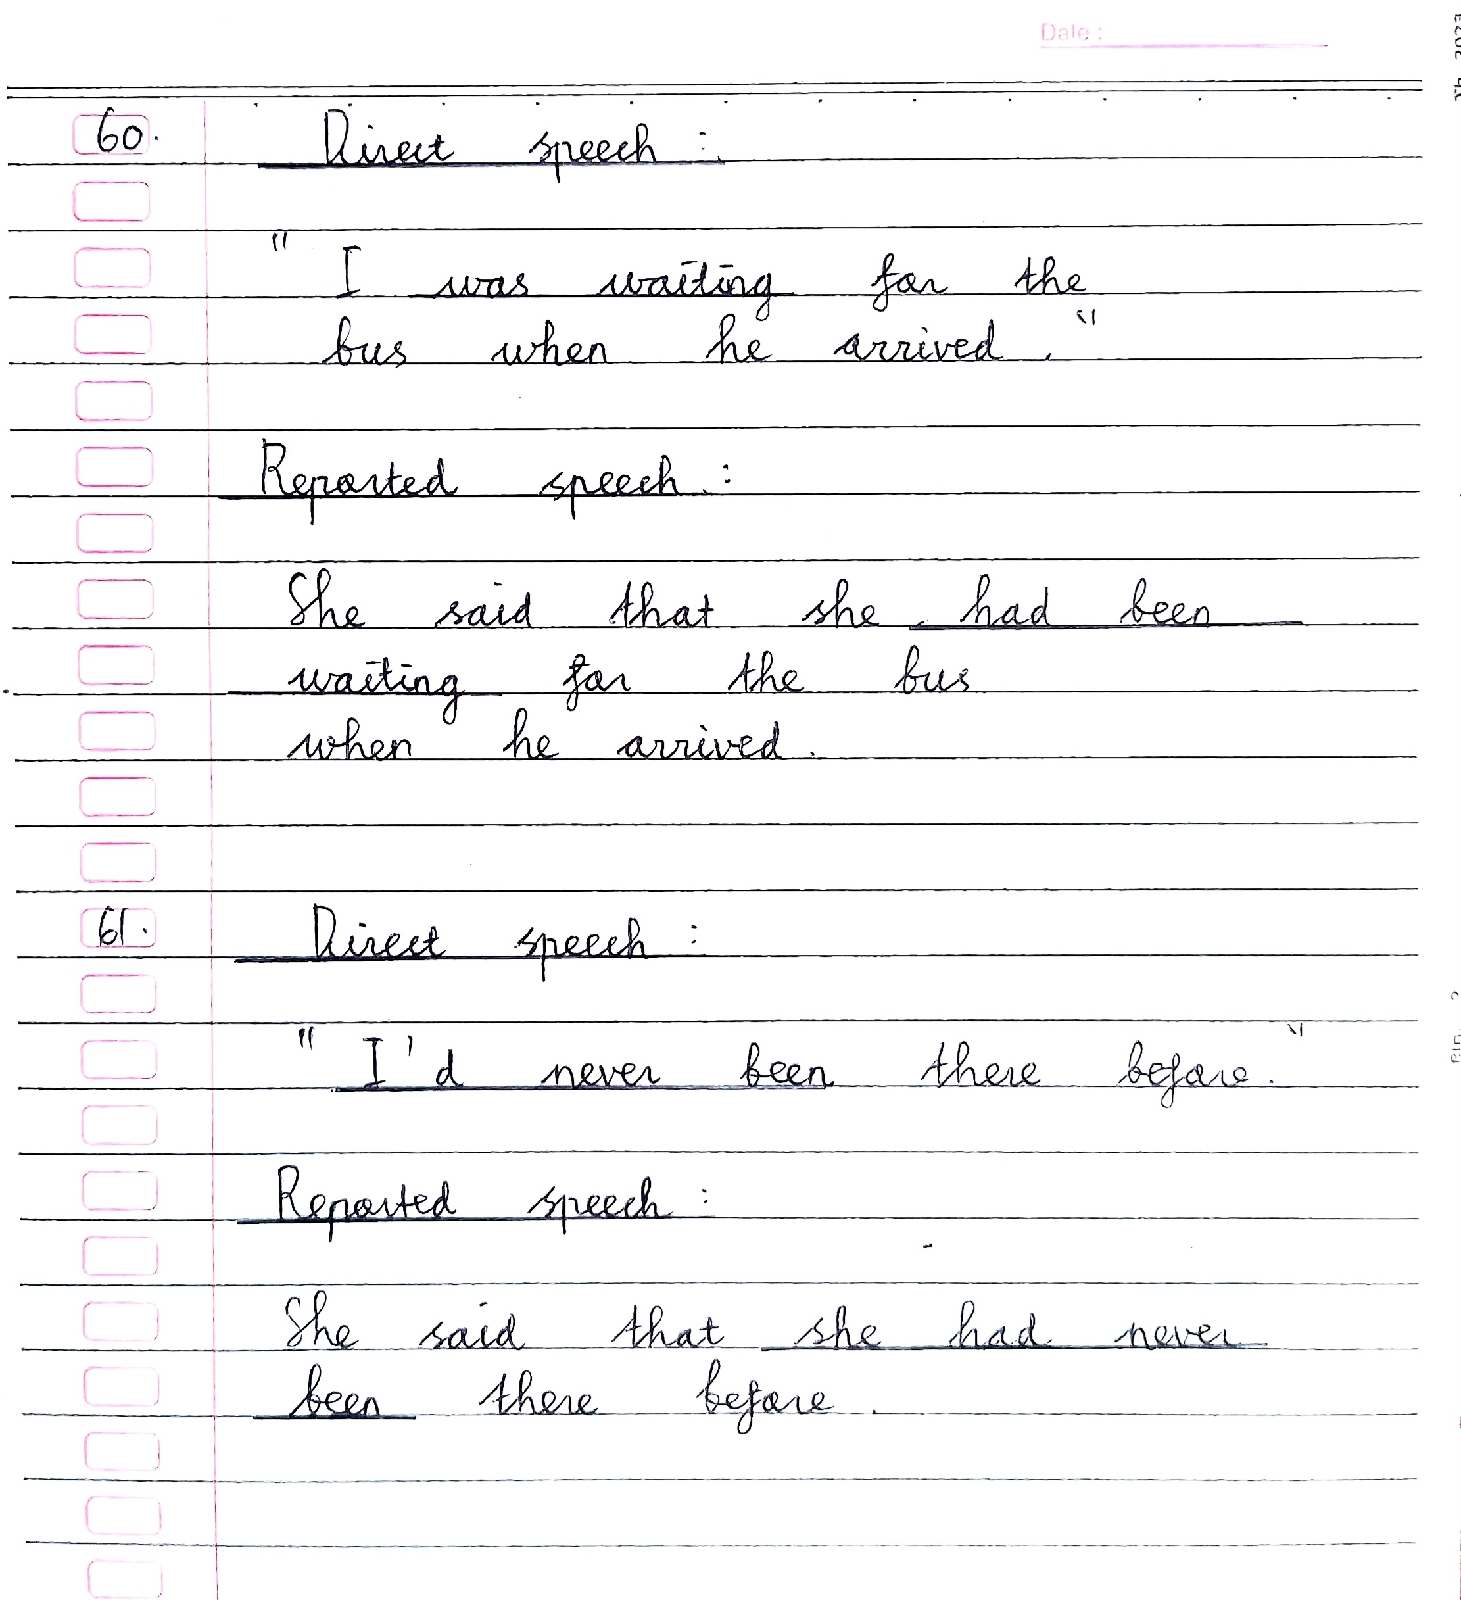 Date :
60. Direct speech :
" I was waiting for the
bus when he arrived. "
Reported speech :
She said that she had been
waiting for the bus
when he arrived.
61. Direct speech :
" I'd never been there before. "
Reported speech :
She said that she had never
been there before.